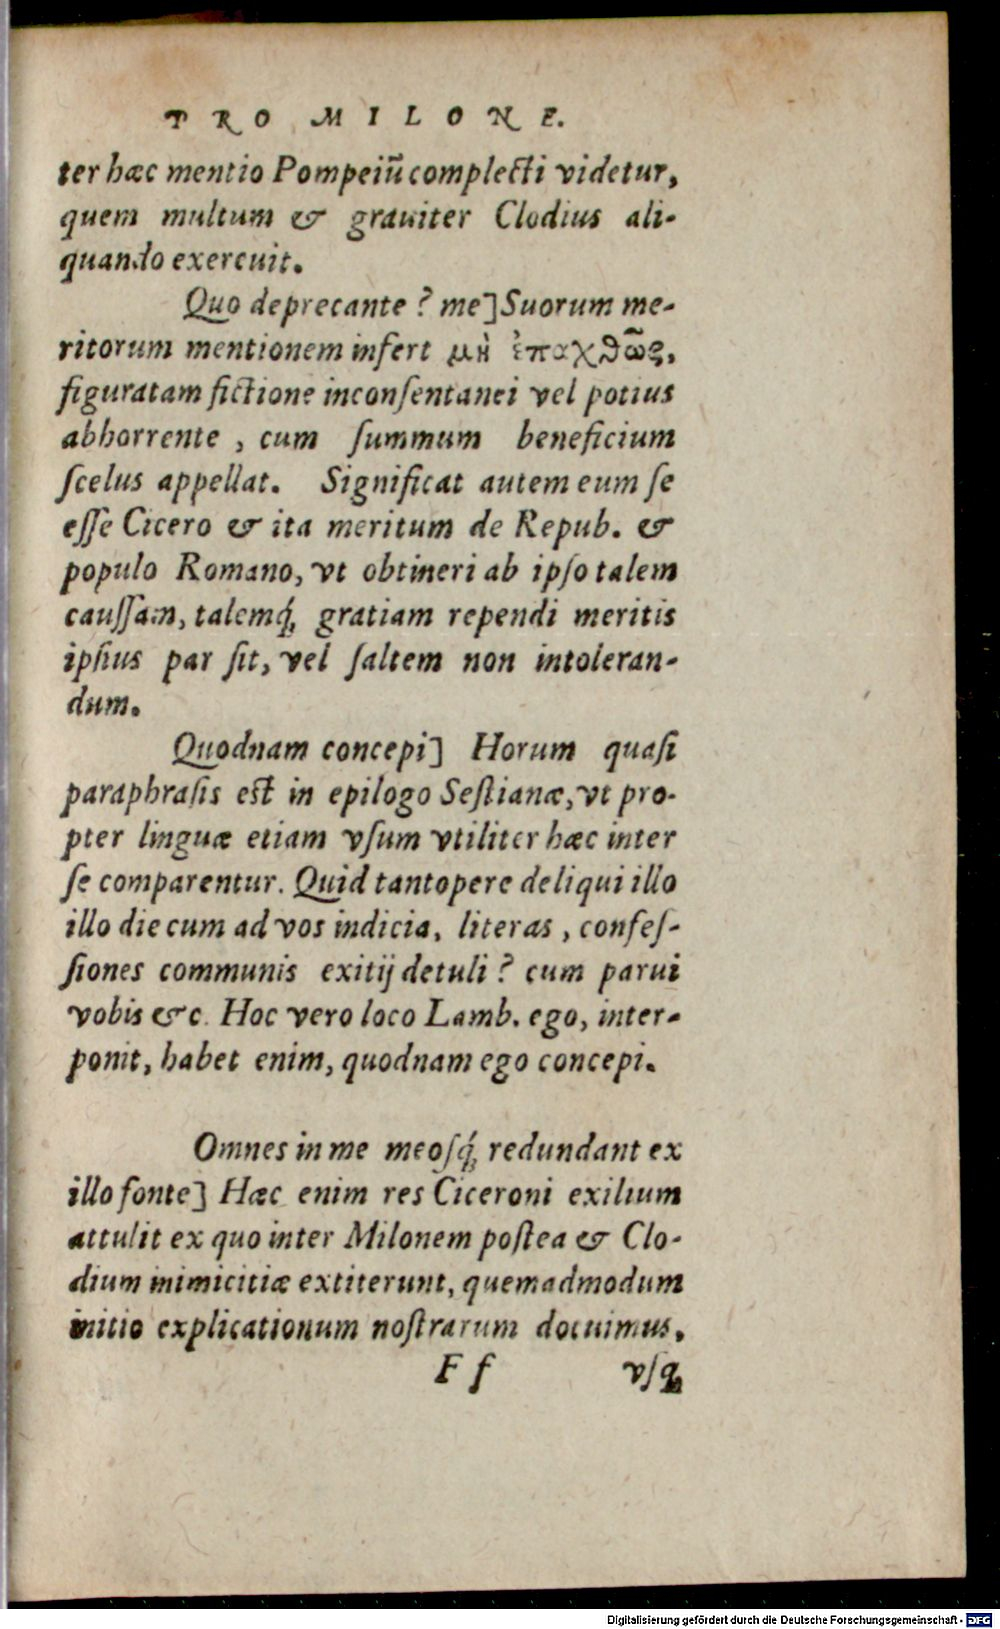 PRO MILONE.
ter hæc mentio Pompeiũ complecti videtur,
quem multum & grauiter Clodius ali-
quando exercuit.
Quo deprecante ? me] Suorum me-
ritorum mentionem infert μὴ ἐπαχθῶς,
figuratam fictione inconſentanei vel potius
abhorrente , cum ſummum beneficium
ſcelus appellat. Significat autem eum ſe
eſſe Cicero & ita meritum de Repub. &
populo Romano, vt obtineri ab ipſo talem
cauſſam, talemq́; gratiam rependi meritis
ipſius par ſit, vel ſaltem non intoleran-
dum.
Quodnam concepi] Horum quaſi
paraphraſis est in epilogo Seſtianæ, vt pro-
pter linguæ etiam vſum vtiliter hæc inter
ſe comparentur. Quid tantopere deliqui illo
illo die cum ad vos indicia, literas , confeſ-
ſiones communis exitij detuli ? cum parui
vobis &c. Hoc vero loco Lamb. ego, inter-
ponit, habet enim, quodnam ego concepi.
Omnes in me meoſq́; redundant ex
illo fonte] Hæc enim res Ciceroni exilium
attulit ex quo inter Milonem poſtea & Clo-
dium inimicitiæ extiterunt, quemadmodum
initio explicationum noſtrarum docuimus.
F f vſq;
Digitalisierung gefördert durch die Deutsche Forschungsgemeinschaft - DFG